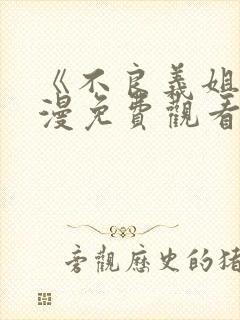 《不良義姐
漫免費觀看
旁觀歷史的猪